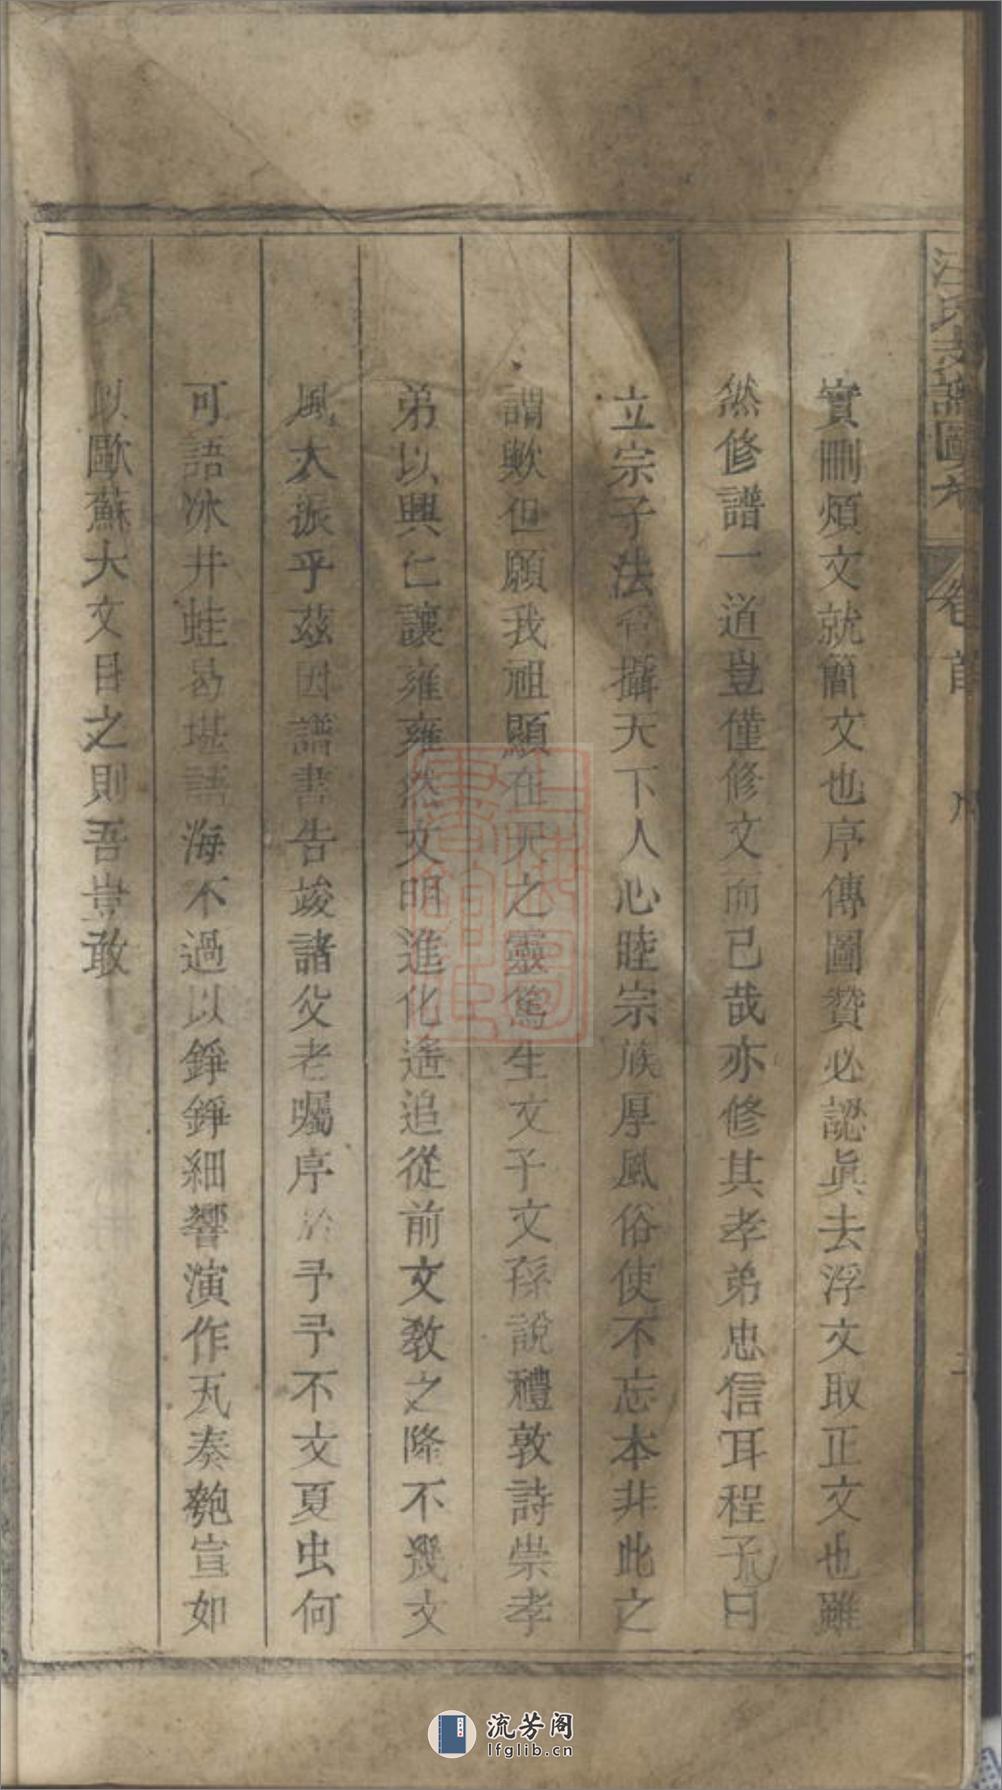 實刪煩文就簡文也序傳圖贊必認眞去浮文取正文也雖
然修譜一道豈僅修文而已哉亦修其孝弟忠信耳程子曰
立宗子法管攝天下人心睦宗族厚風俗使不忘本非此之
謂歟但願我祖顯在天之靈篤生文子文孫說禮敦詩崇孝
弟以興仁讓雍雍然文明進化遙追從前文教之隆不幾文
風大振乎茲因譜書告竣諸父老囑序於予予不文夏虫何
可語冰井蛙曷堪語海不過以錚錚細響演作瓦奏匏宣如
以歐蘇大文目之則吾豈敢
汪氏支譜
卷首
序
流芳阁
lfglib.cn